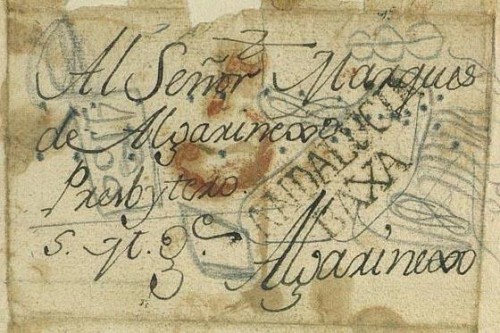 Al Señor Marques
de Algarinexo
Presbytero.
Algarinexo
ANDALUCIA
BAXA